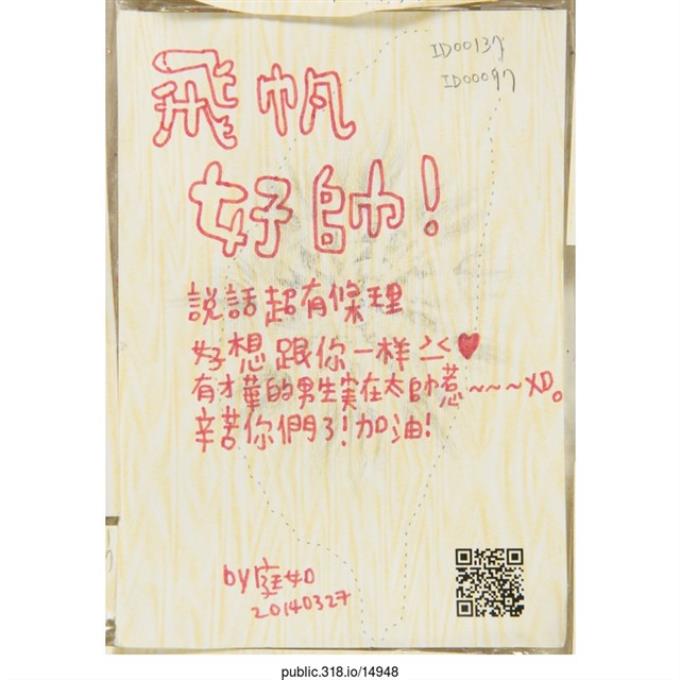 ID00137
ID00097
飛帆
好帥!
說話超有條理
好想跟你一样><♥
有才華的男生実在太帥惹~~~XD。
辛苦你們了!加油!
by庭如
20140327
public.318.io/14948